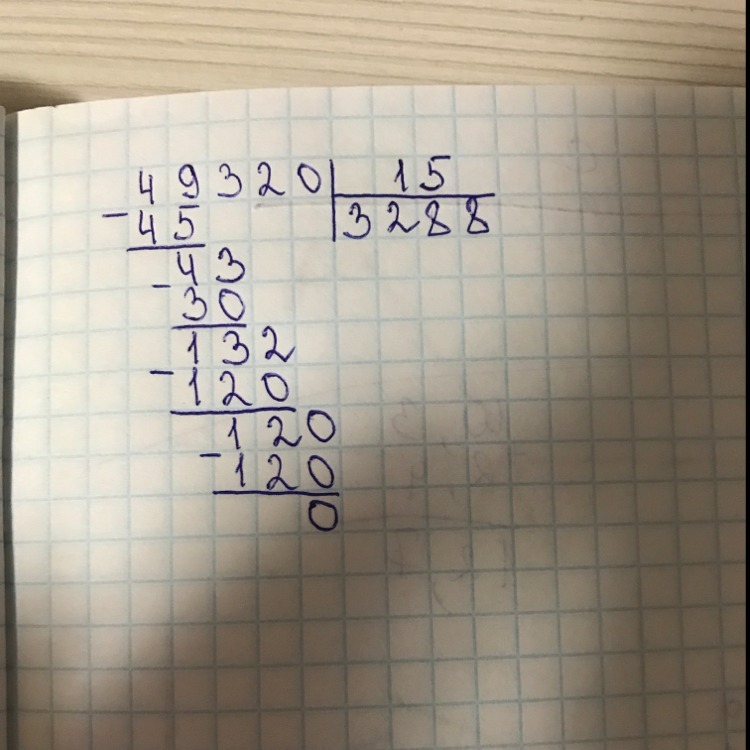 49320 15
- 45 3288
- 43
30
- 132
120
- 120
120
0